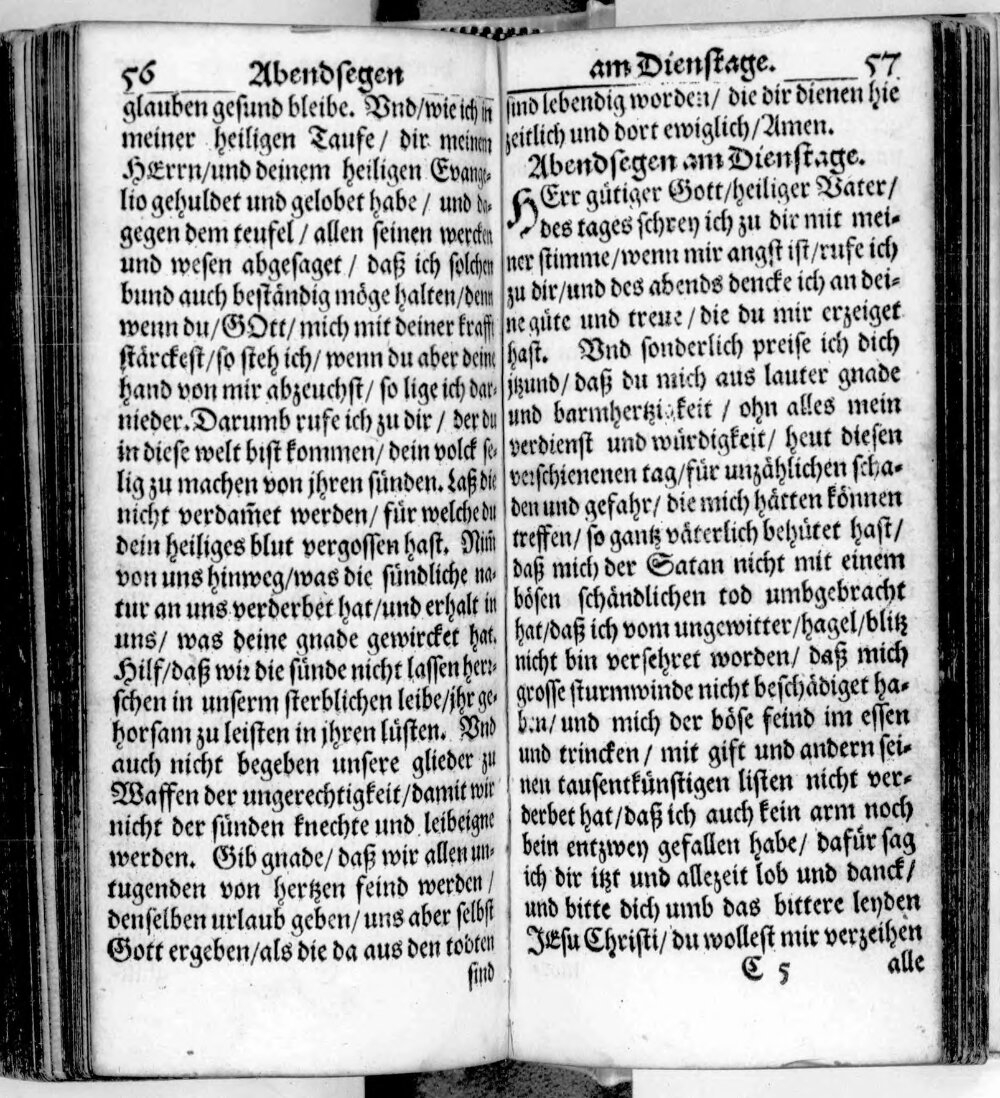 56 Abendsegen
glauben gesund bleibe. Vnd/wie ich in
meiner heiligen Taufe/ dir meinem
HErrn/und deinem heiligen Evange-
lio gehuldet und gelobet habe/ und da-
gegen dem teufel/ allen seinen wercken
und wesen abgesaget/ daß ich solchen
bund auch beständig möge halten/denn
wenn du/GOtt/mich mit deiner krafft
stärckest/so steh ich/wenn du aber deine
hand von mir abzeuchst/ so lige ich dar-
nieder. Darumb rufe ich zu dir/ der du
in diese welt bist kommen/dein volck se-
lig zu machen von jhren sünden. Laß die
nicht verdam̃et werden/ für welche du
dein heiliges blut vergossen hast. Nim̃
von uns hinweg/was die sündliche na-
tur an uns verderbet hat/und erhalt in
uns/ was deine gnade gewircket hat.
Hilf/daß wir die sünde nicht lassen herr-
schen in unserm sterblichen leibe/jhr ge-
horsam zu leisten in jhren lüsten. Vnd
auch nicht begeben unsere glieder zu
Waffen der ungerechtigkeit/damit wir
nicht der sünden knechte und leibeigne
werden. Gib gnade/ daß wir allen un-
tugenden von hertzen feind werden/
denselben urlaub geben/uns aber selbst
Gott ergeben/als die da aus den todten
sind
am Dienstage. 57
sind lebendig worden/ die dir dienen hie
zeitlich und dort ewiglich/Amen.
Abendsegen am Dienstage.
HErr gütiger Gott/heiliger Vater/
des tages schrey ich zu dir mit mei-
ner stimme/wenn mir angst ist/rufe ich
zu dir/und des abends dencke ich an dei-
ne güte und treue/die du mir erzeiget
hast. Vnd sonderlich preise ich dich
itzund/ daß du mich aus lauter gnade
und barmhertzigkeit/ ohn alles mein
verdienst und würdigkeit/ heut diesen
verschienenen tag/für unzählichen scha-
den und gefahr/ die mich hätten können
treffen/ so gantz väterlich behütet hast/
daß mich der Satan nicht mit einem
bösen schändlichen tod umbgebracht
hat/daß ich vom ungewitter/hagel/blitz
nicht bin versehret worden/ daß mich
grosse sturmwinde nicht beschädiget ha-
ben/und mich der böse feind im essen
und trincken/ mit gift und andern sei-
nen tausentkünstigen listen nicht ver-
derbet hat/daß ich auch kein arm noch
bein entzwey gefallen habe/ dafür sag
ich dir itzt und allezeit lob und danck/
und bitte dich umb das bittere leyden
JEsu Christi/du wollest mir verzeihen
C 5 alle